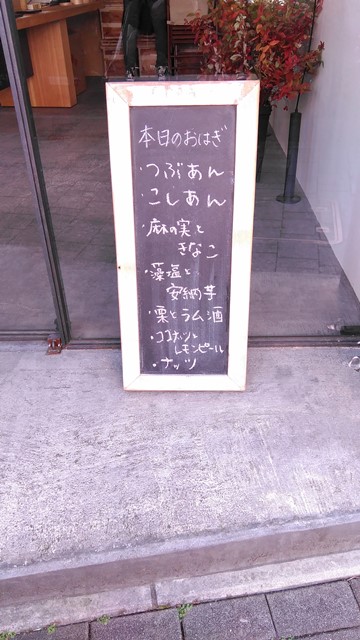 本日のおはぎ
・つぶあん
・こしあん
・麻の実と
きなこ
・藻塩と
安納芋
・栗とラム酒
・ココナッツと
レモンピール
・ナッツ